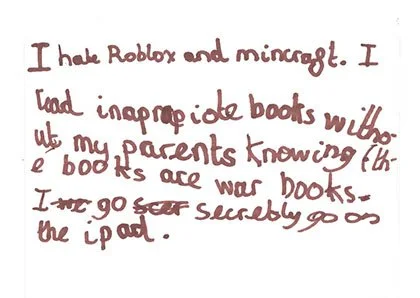 I hate Roblox and mincraft. I
read inaprapiote books witho
ut my parents knowing (th
e books are war books.
I go secrebly go on
the ipad.